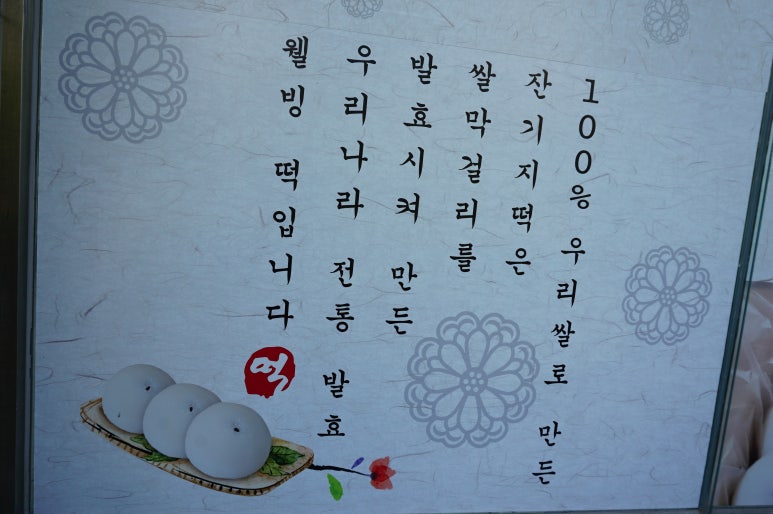 100응 우리쌀로 만든
잔기지떡은
쌀막걸리를
발효시켜 만든
우리나라 전통 발효
웰빙 떡입니다
떡